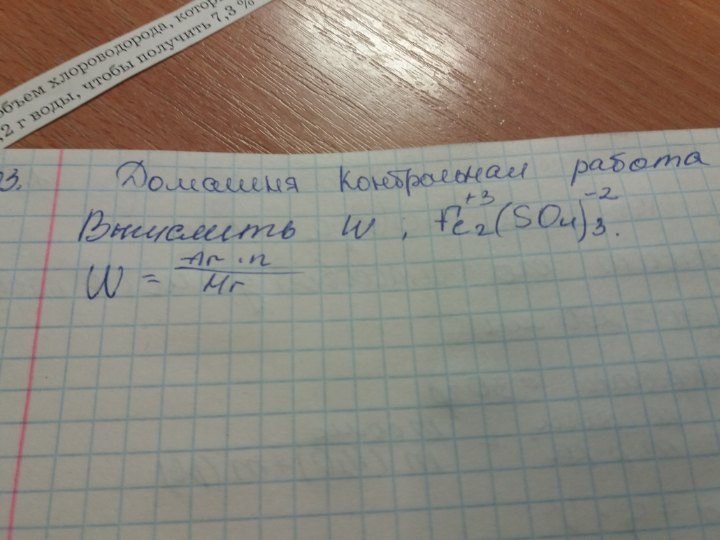 объем хлороводорода, котор
,2 г воды, чтобы получить 7,3 %
03. Домашняя контрольная работа
Вычислить W, Fe₂⁺³(SO₄)₃⁻².
W = Ar · n / Mr